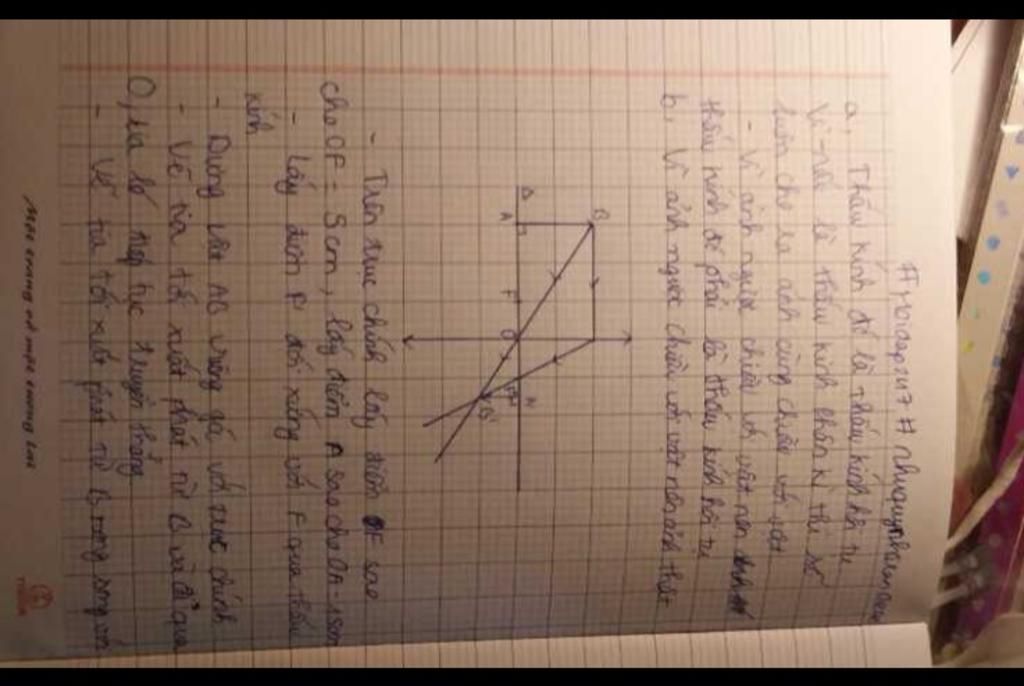 #Hoidap247#
a, Thấu kính đó là thấu kính hội tụ
Vì nếu là thấu kính phân kì thì sẽ
luôn cho ra ảnh cùng chiều với vật
- Vì ảnh ngược chiều với vật nên
thấu kính đó phải là thấu kính hội tụ
b, Vì ảnh ngược chiều với vật nên ảnh thật
B
Δ
A
F
O
F'
A'
B'
- Trên trục chính lấy điểm F sao
cho OF = 5cm, lấy điểm A sao cho OA = 15cm
- Lấy điểm F' đối xứng với F qua thấu
kính
- Dựng vật AB vuông góc với trục chính
- Vẽ tia tới xuất phát từ B và đi qua
O, tia ló tiếp tục truyền thẳng
- Vẽ tia tới xuất phát từ B song song với